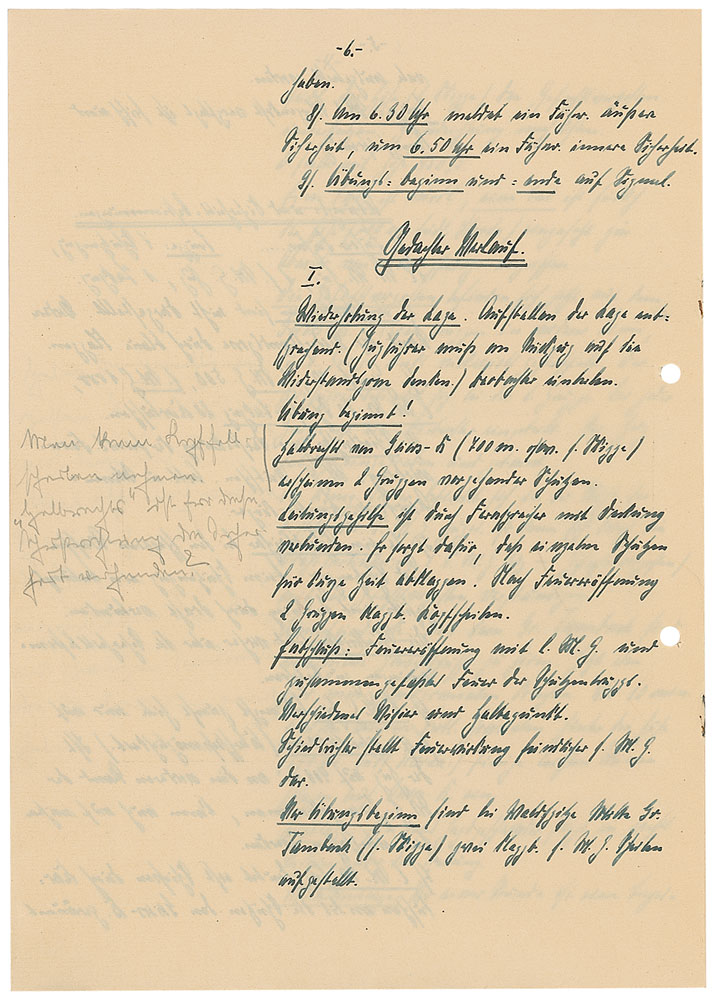 -6.-
haben.
8/. Um 6.30 Uhr meldet ein Führ. äußere
Sicherheit, um 6.50 Uhr ein Führ. innere Sicherheit.
9/. Übungs=beginn und =ende auf Signal.
Gedachter Verlauf.
I.
Wiederholung der Lage. Aufstellen der Lage ent-
sprechend. (Zugführer muß an Rückzug auf die
Widerstandszone denken.) Beobachter einteilen.
Übung beginnt!
Halbrechts von (700 m. s. Skizze)
erscheinen 2 Gruppen vorgehender Schützen.
Leitungsgehilfe ist durch Fernsprecher mit Deckung
verbunden. Er sorgt dafür, daß einzelne Schützen
für kurze Zeit abklappen. Nach Feuereröffnung
2 Gruppen klappb. Kopfscheiben.
Entschluß: Feuereröffnung mit l. M. G. und
zusammengefaßtes Feuer der Schützentrupps.
Verschiedenes Visier und Haltepunkt.
Schiedsrichter stellt Feuerwirkung feindlicher s. M. G.
dar.
Vor Übungsbeginn sind bei Waldspitze Gr.
Tambach (s. Skizze) zwei klappb. s. M. G. Scheiben
aufgestellt.
Man kann
scheiben nehmen